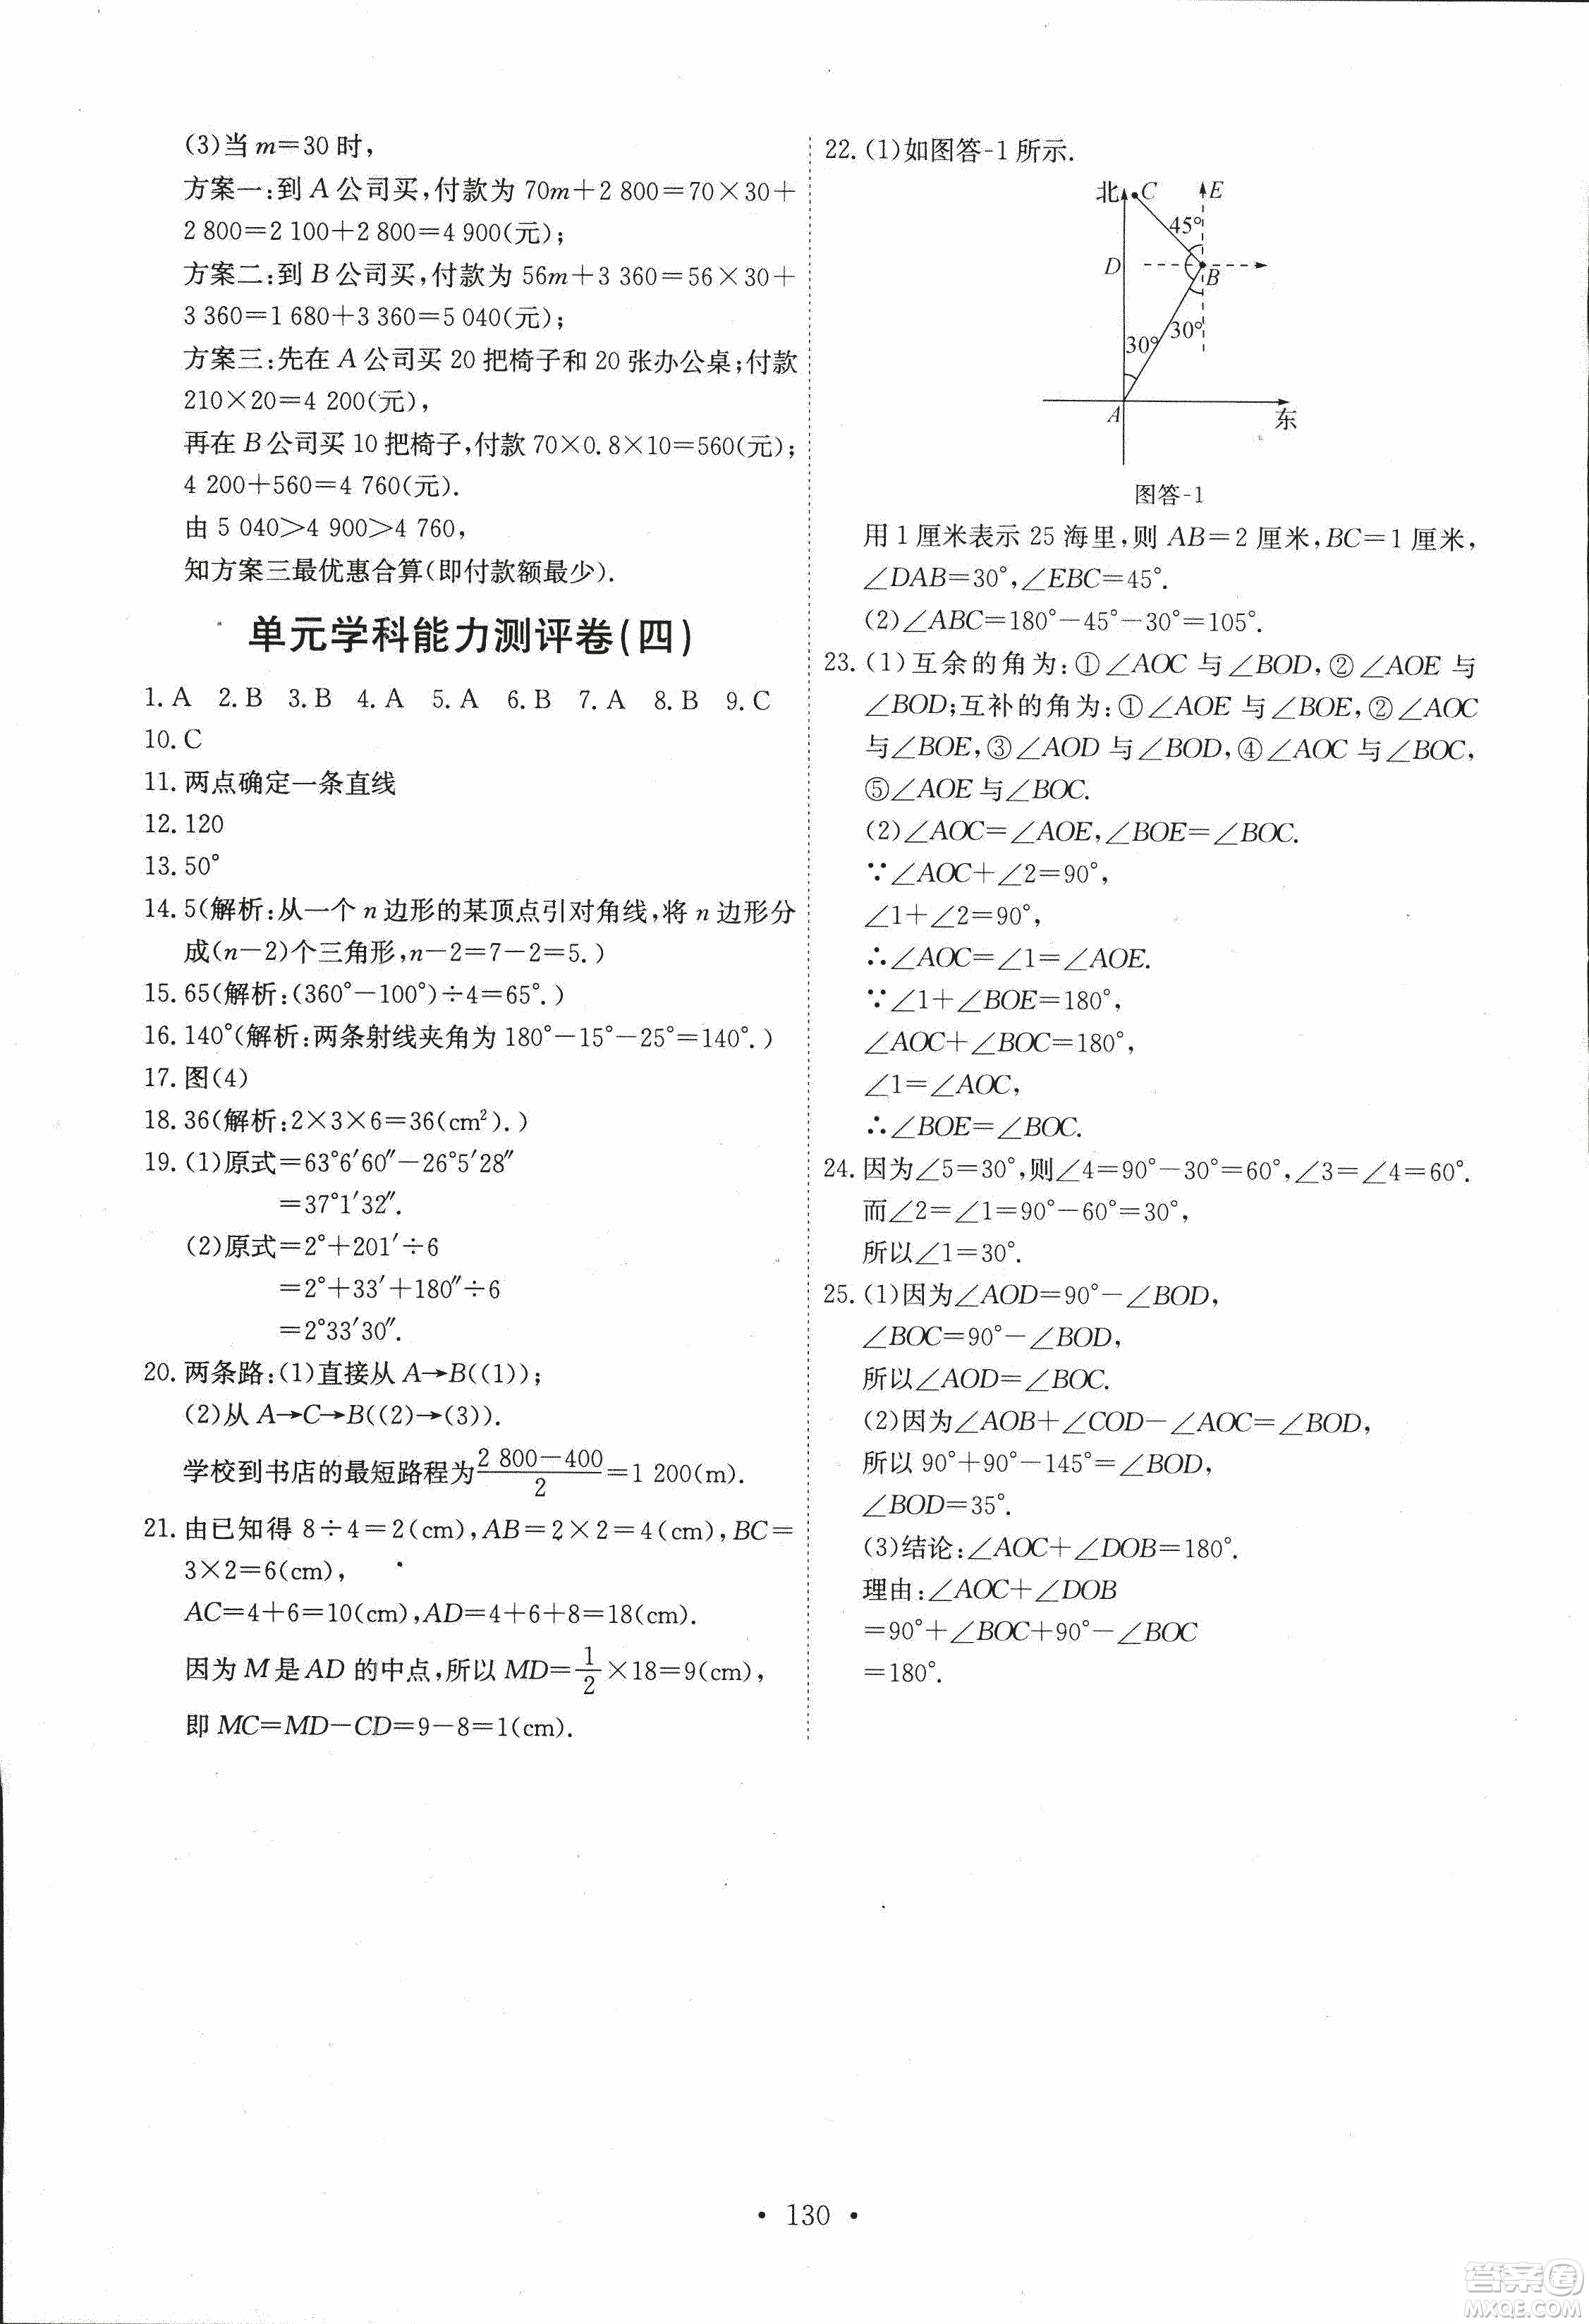 (3)当 m=30 时,
方案一:到 A 公司买,付款为 70m+2 800=70×30+
2 800=2 100+2 800=4 900(元);
方案二:到 B 公司买,付款为 56m+3 360=56×30+
3 360=1 680+3 360=5 040(元);
方案三:先在 A 公司买 20 把椅子和 20 张办公桌;付款
210×20=4 200(元),
再在 B 公司买 10 把椅子,付款 70×0.8×10=560(元);
4 200+560=4 760(元).
由 5 040>4 900>4 760,
知方案三最优惠合算(即付款额最少).
单元学科能力测评卷(四)
1. A 2. B 3. B 4. A 5. A 6. B 7. A 8. B 9. C
10. C
11. 两点确定一条直线
12. 120
13. 50°
14. 5(解析:从一个 n 边形的某顶点引对角线,将 n 边形分
成(n-2)个三角形,n-2=7-2=5.)
15. 65(解析:(360°-100°)÷4=65°.)
16. 140°(解析:两条射线夹角为 180°-15°-25°=140°.)
17. 图(4)
18. 36(解析:2×3×6=36(cm²).)
19. (1)原式=63°6′60″-26°5′28″
=37°1′32″.
(2)原式=2°+201′÷6
=2°+33′+180″÷6
=2°33′30″.
20. 两条路:(1)直接从 A→B((1));
(2)从 A→C→B((2)→(3)).
学校到书店的最短路程为(2 800-400)/2=1 200(m).
21. 由已知得 8÷4=2(cm),AB=2×2=4(cm),BC=
3×2=6(cm),
AC=4+6=10(cm),AD=4+6+8=18(cm).
因为 M 是 AD 的中点,所以 MD=1/2×18=9(cm),
即 MC=MD-CD=9-8=1(cm).
22. (1)如图答-1 所示.
北 C E
45°
D B
30° 30°
A 东
图答-1
用 1 厘米表示 25 海里,则 AB=2 厘米,BC=1 厘米,
∠DAB=30°,∠EBC=45°.
(2)∠ABC=180°-45°-30°=105°.
23. (1)互余的角为:①∠AOC 与∠BOD,②∠AOE 与
∠BOD;互补的角为:①∠AOE 与∠BOE,②∠AOC
与∠BOE,③∠AOD 与∠BOD,④∠AOC 与∠BOC,
⑤∠AOE 与∠BOC.
(2)∠AOC=∠AOE,∠BOE=∠BOC.
∵∠AOC+∠2=90°,
∠1+∠2=90°,
∴∠AOC=∠1=∠AOE.
∵∠1+∠BOE=180°,
∠AOC+∠BOC=180°,
∠1=∠AOC,
∴∠BOE=∠BOC.
24. 因为∠5=30°,则∠4=90°-30°=60°,∠3=∠4=60°.
而∠2=∠1=90°-60°=30°,
所以∠1=30°.
25. (1)因为∠AOD=90°-∠BOD,
∠BOC=90°-∠BOD,
所以∠AOD=∠BOC.
(2)因为∠AOB+∠COD-∠AOC=∠BOD,
所以 90°+90°-145°=∠BOD,
∠BOD=35°.
(3)结论:∠AOC+∠DOB=180°.
理由:∠AOC+∠DOB
=90°+∠BOC+90°-∠BOC
=180°.
• 130 •
答案圈
MXQE.COM